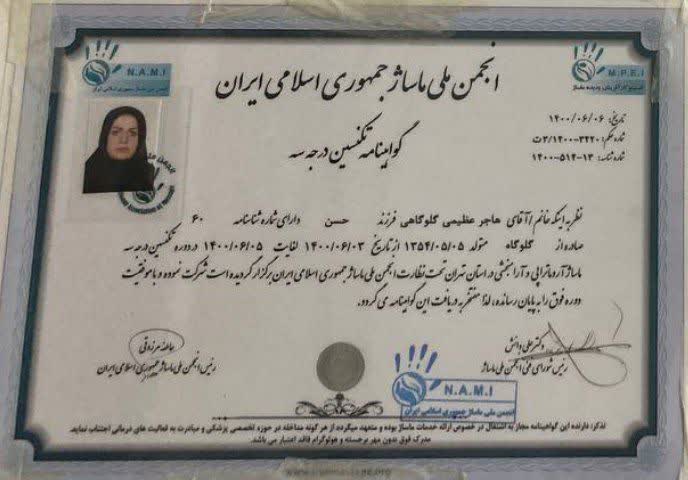 N.A.M.I
انجمن ملی ماساژ جمهوری اسلامی ایران
M.P.E.I
انجمن ملی ماساژ جمهوری اسلامی ایران
گواهینامه تکنسین درجه سه
تاریخ: ۱۴۰۰/۰۶/۰۶
شماره حکم: ۳/۱۴۰۰-۳۲۲۰ت
شماره شناسه: ۱۴-۵۱۴-۱۴۰۰
نظر به اینکه خانم/آقای هاجر عظیمی گلوگاهی فرزند حسن دارای شماره شناسنامه ۶۰
صادره از گلوگاه متولد ۱۳۵۴/۰۵/۰۵ از تاریخ ۱۴۰۰/۰۶/۰۳ لغایت ۱۴۰۰/۰۶/۰۵ در دوره تکنسین درجه سه
ماساژ آروماتراپی و آرامبخشی در استان تهران تحت نظارت انجمن ملی ماساژ جمهوری اسلامی ایران برگزار گردیده است شرکت نموده و با موفقیت
دوره فوق را به پایان رسانده، لذا مفتخر به دریافت این گواهینامه می گردد.
دکتر علی دانش
رئیس شورای فنی انجمن ملی ماساژ
رئیس انجمن ملی ماساژ جمهوری اسلامی ایران
N.A.M.I
انجمن ملی ماساژ جمهوری اسلامی ایران
تذکر: دارنده این گواهینامه مجاز به اشتغال در خصوص ارائه خدمات ماساژ بوده و متعهد میگردد از هر گونه مداخله در حوزه تخصصی پزشکی و مبادرت به فعالیت های درمانی اجتناب نماید.
مدرک فوق بدون مهر برجسته و هولوگرام فاقد اعتبار می باشد.